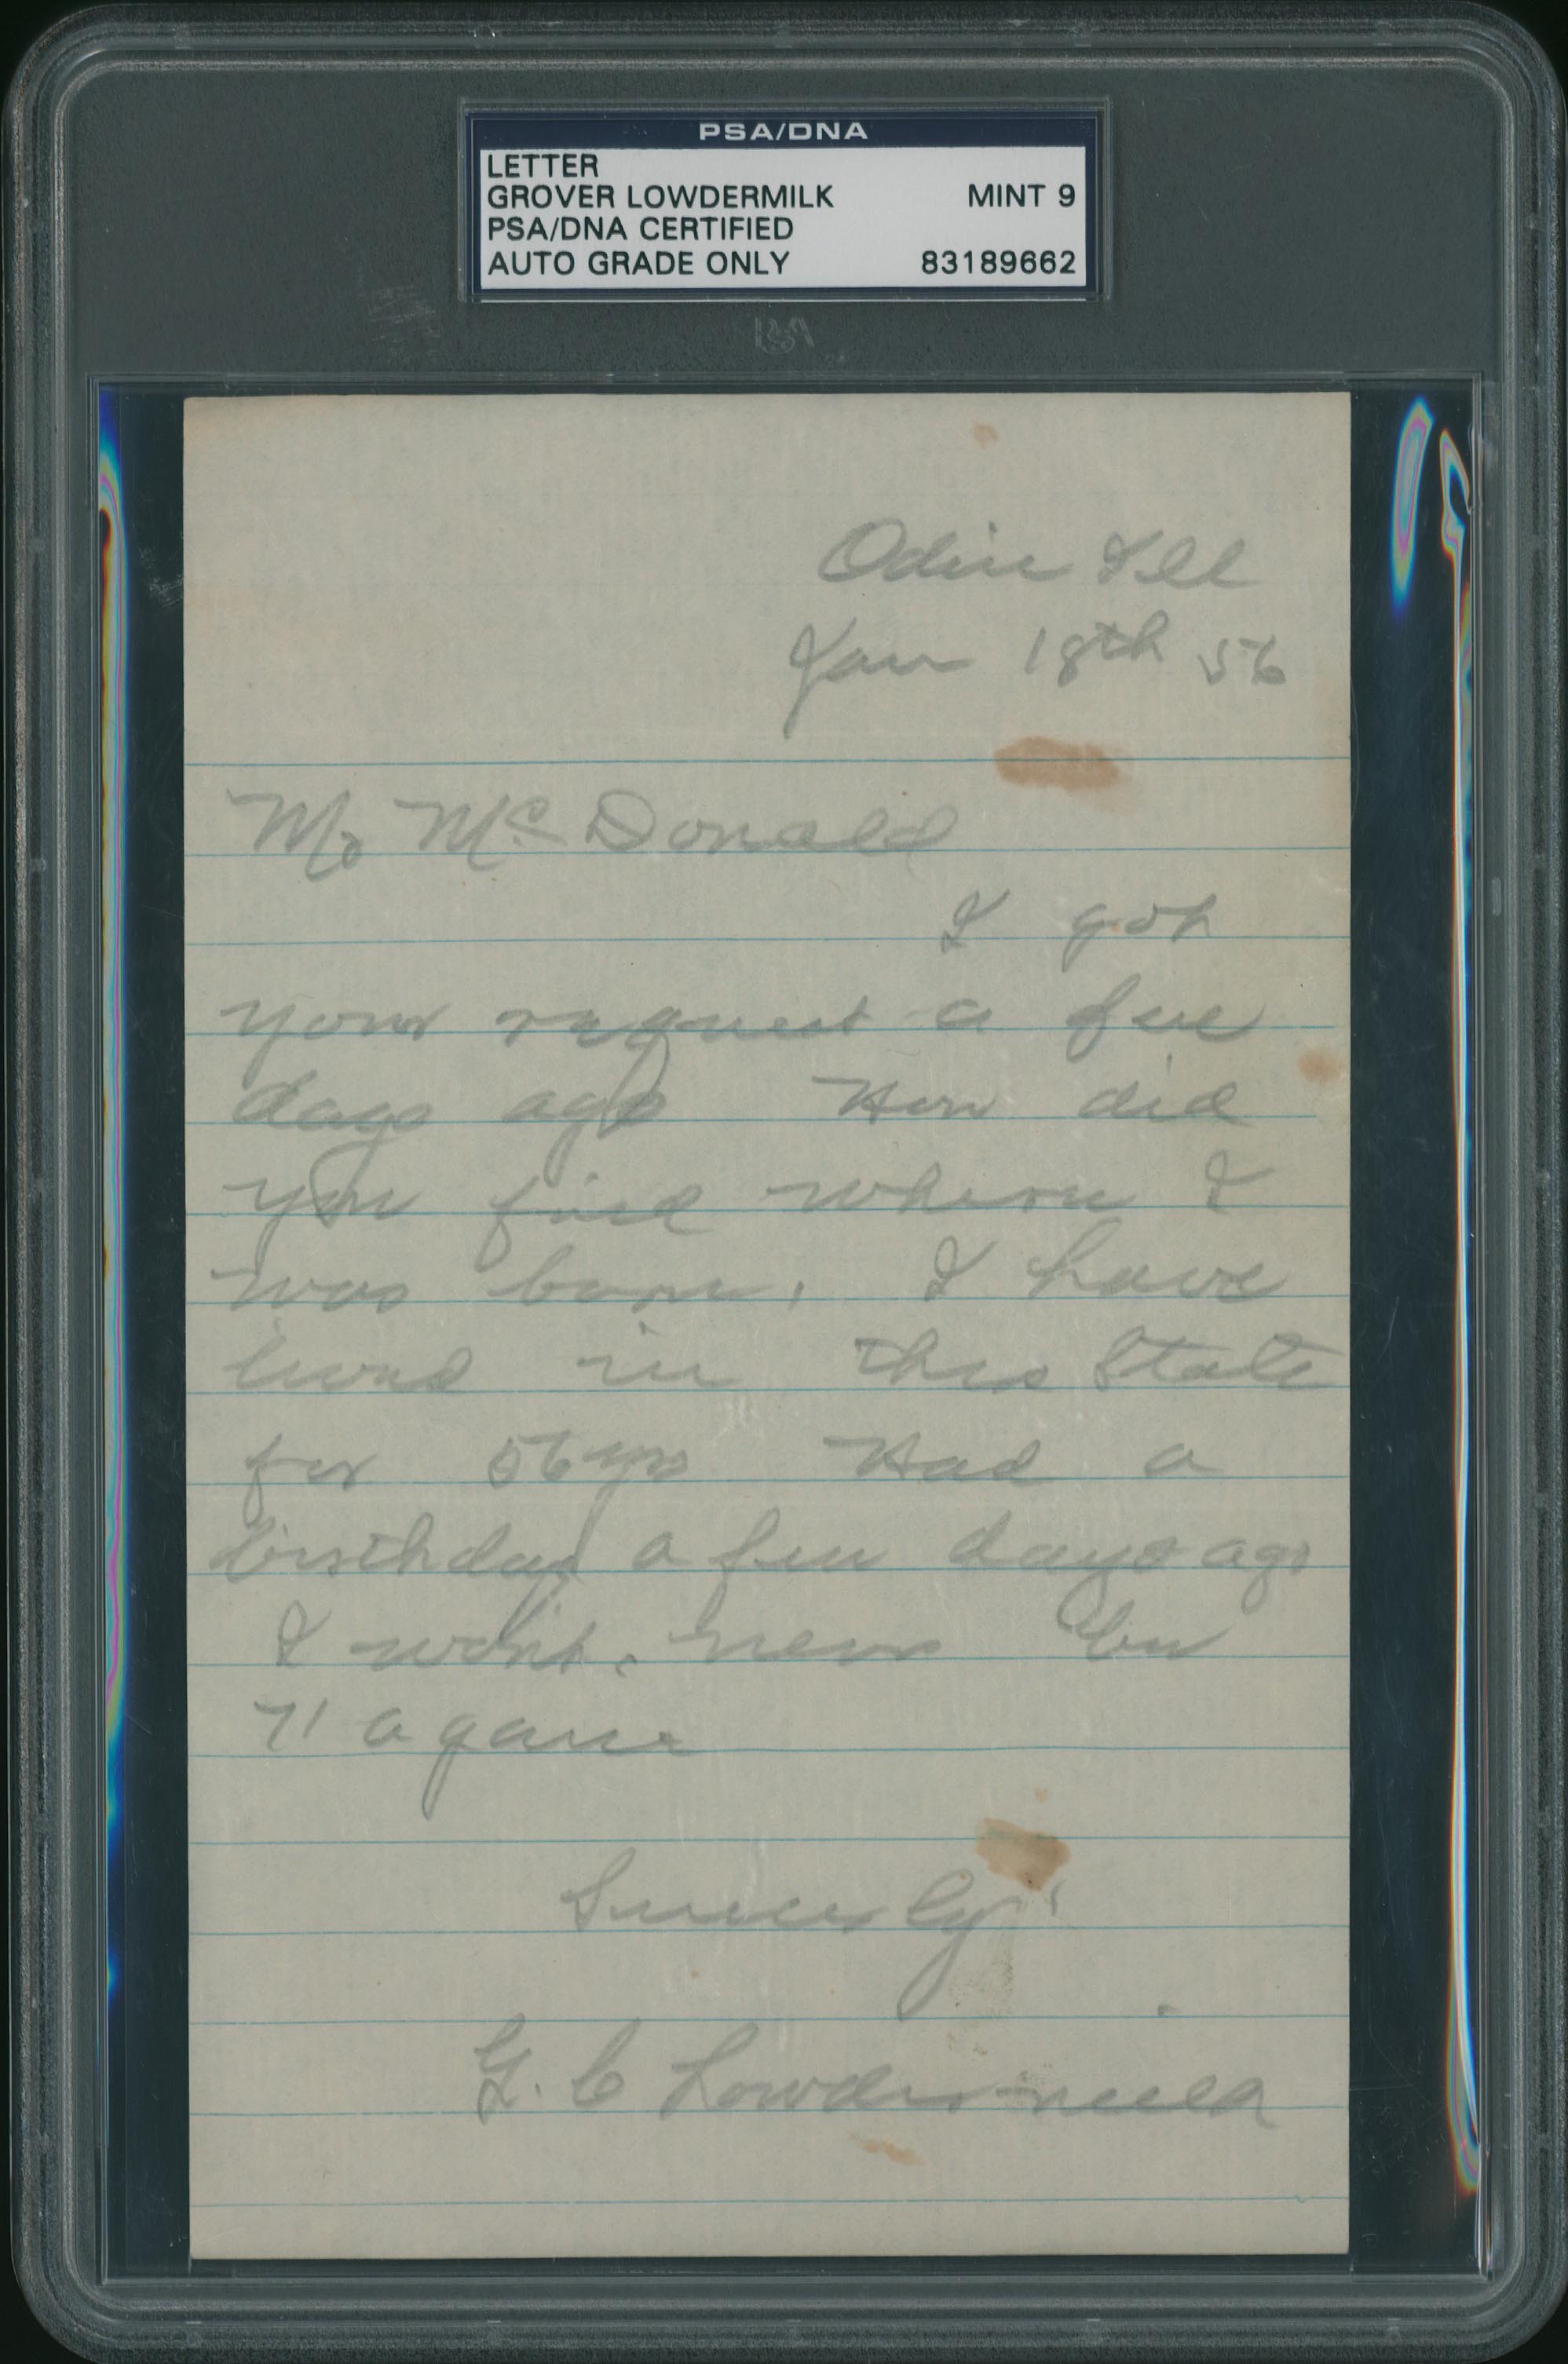 PSA/DNA
LETTER
GROVER LOWDERMILK MINT 9
PSA/DNA CERTIFIED
AUTO GRADE ONLY 83189662
PSA
Odin Ill
Jan 18th 56
Mr McDonald
I got
your request a few
days ago How did
you find where I
was born. I have
lived in this State
for 56 yrs Had a
birthday a few days ago
I wont. never be
71 again
Sincerely
G. C Lowdermilk